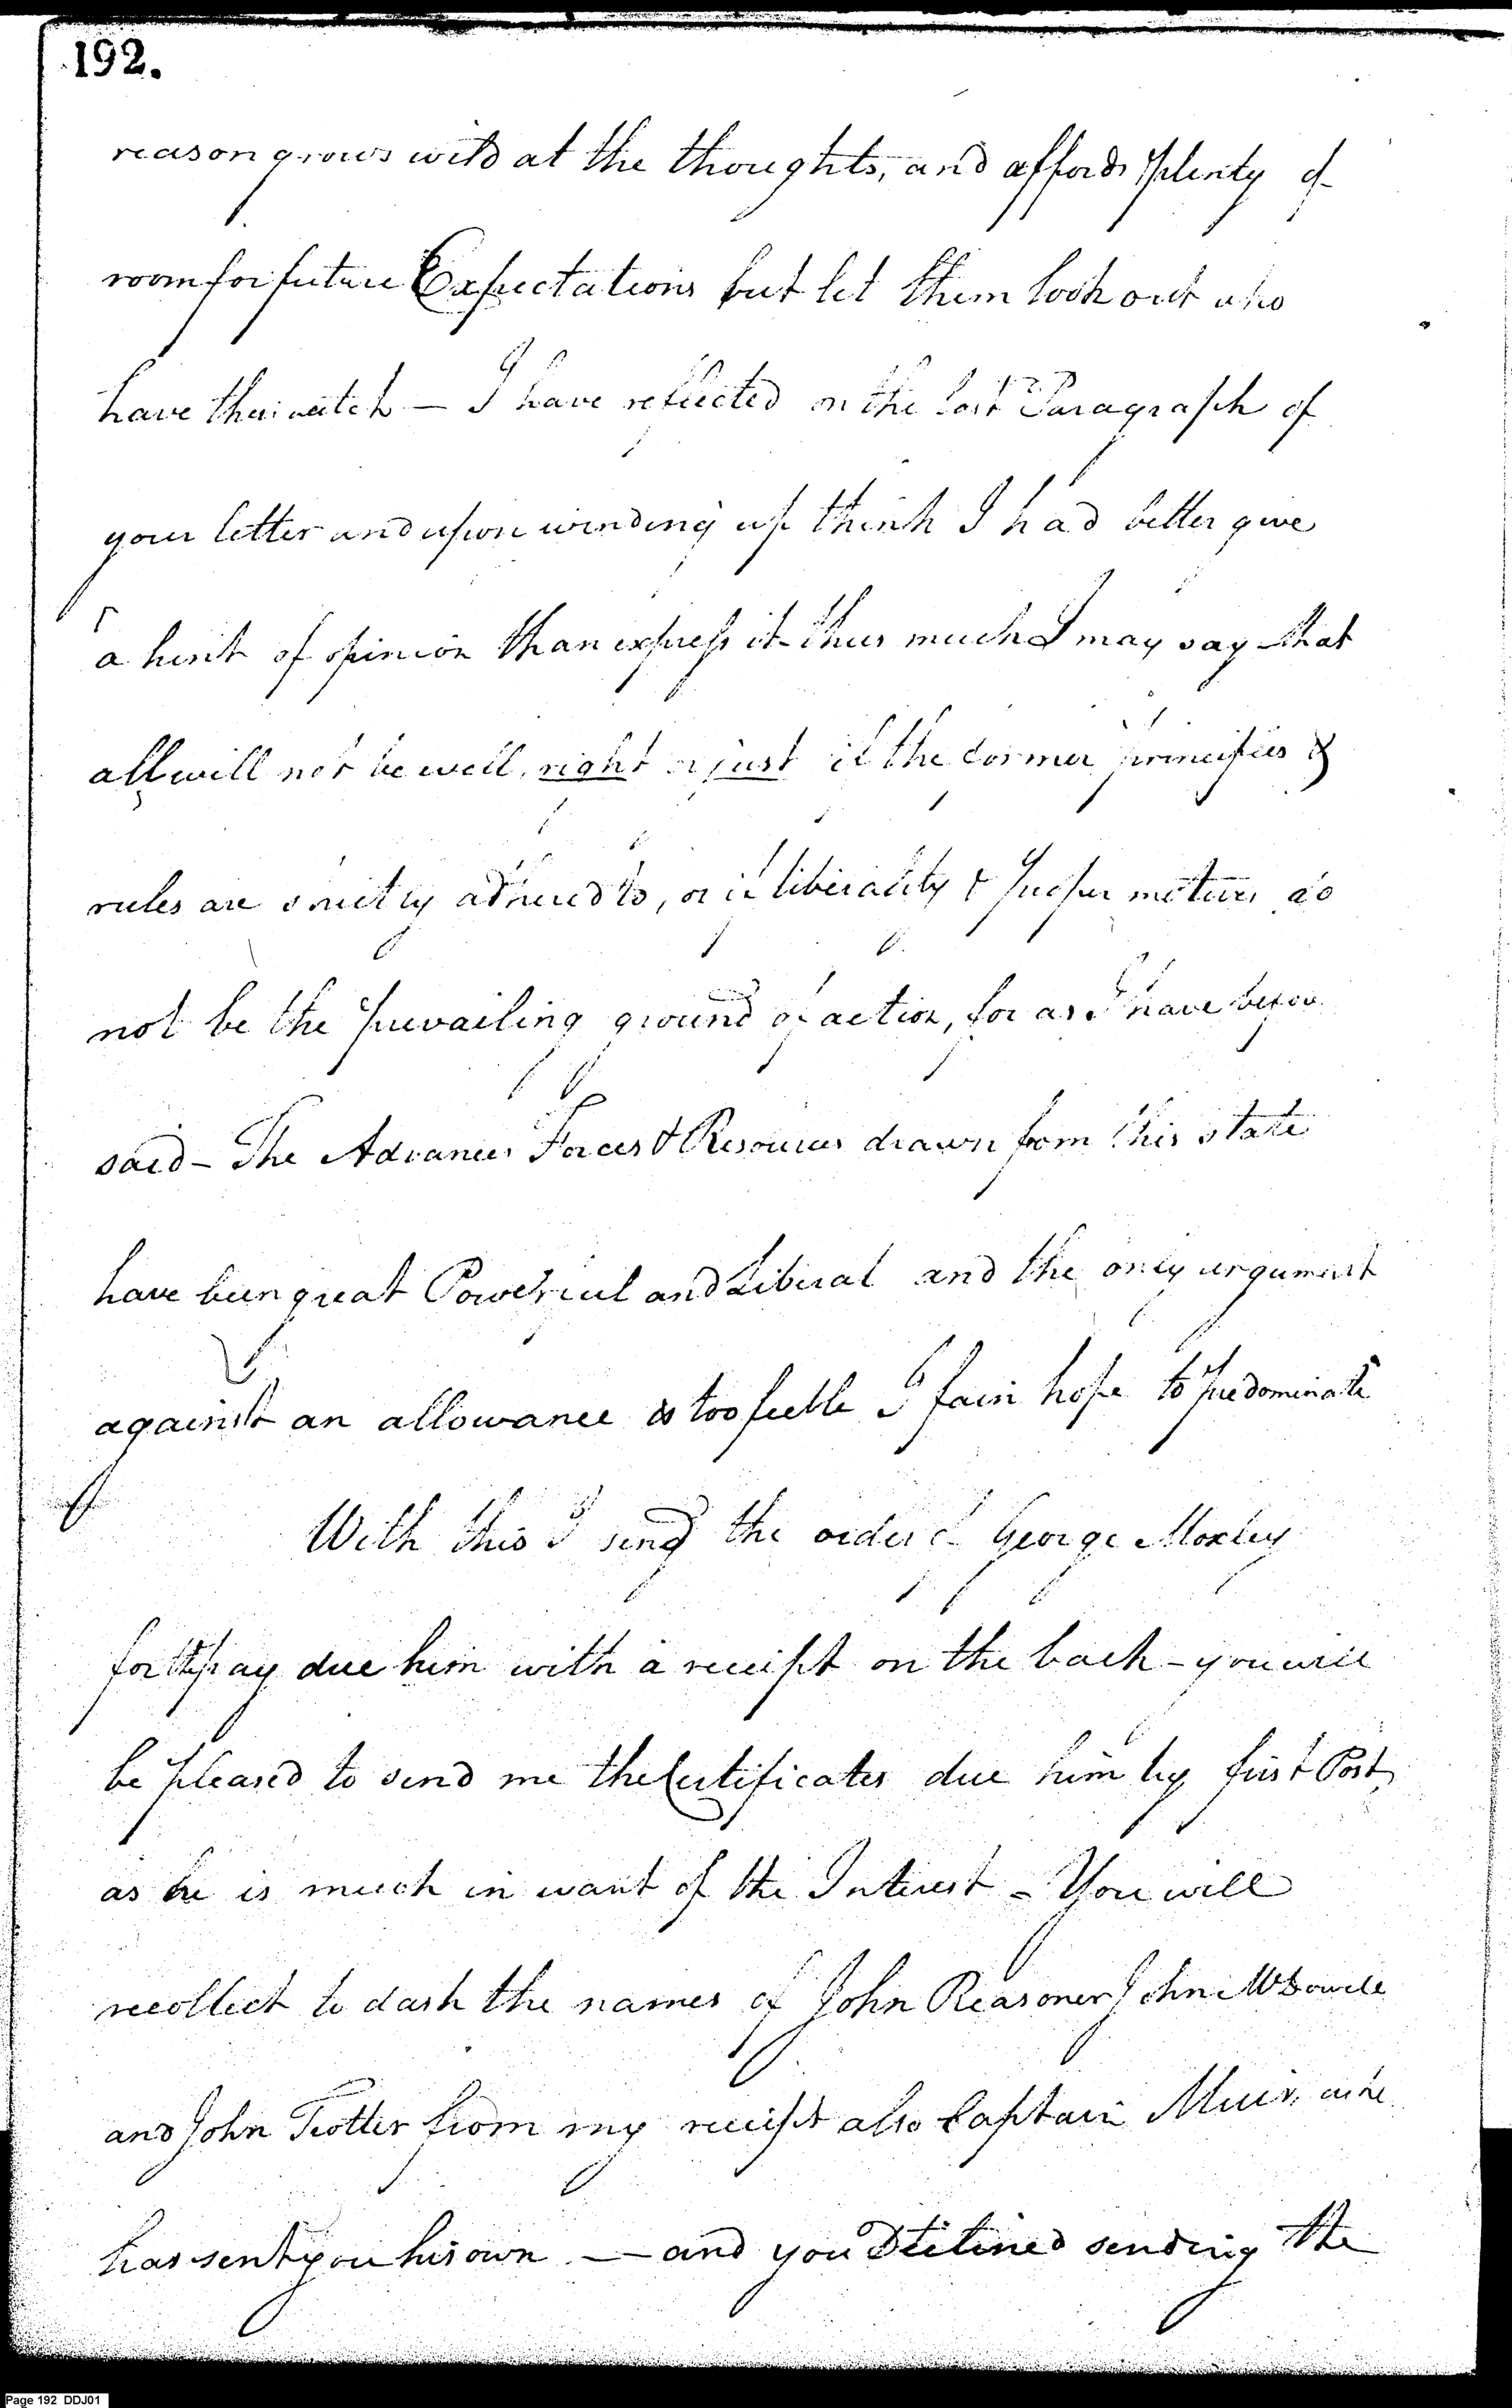 192.
reason grows wild at the thoughts, and affords plenty of
room for future Expectations but let them look out who
have their watch — I have reflected on the last Paragraph of
your letter and upon winding up think I had better give
a hint of opinion than express it thus much I may say that
all will not be well, right or just if the former principles &
rules are strictly adhered to, or if liberality & proper motives do
not be the prevailing ground of action, for as I have before
said – The Advances Forces & Resources drawn from this state
have been great Powerful and Liberal and the only argument
against an allowance is too feeble I fain hope to predominate
With this I send the order of George Moxley
for the pay due him with a receipt on the back – you will
be pleased to send me the Certificates due him by first Post
as he is much in want of the Interest – You will
recollect to dash the names of John Reasoner John McDowell
and John Trotter from my receipt also Captain Muir, as he
has sent you his own — and you Declined sending the
Page 192 DDJ01